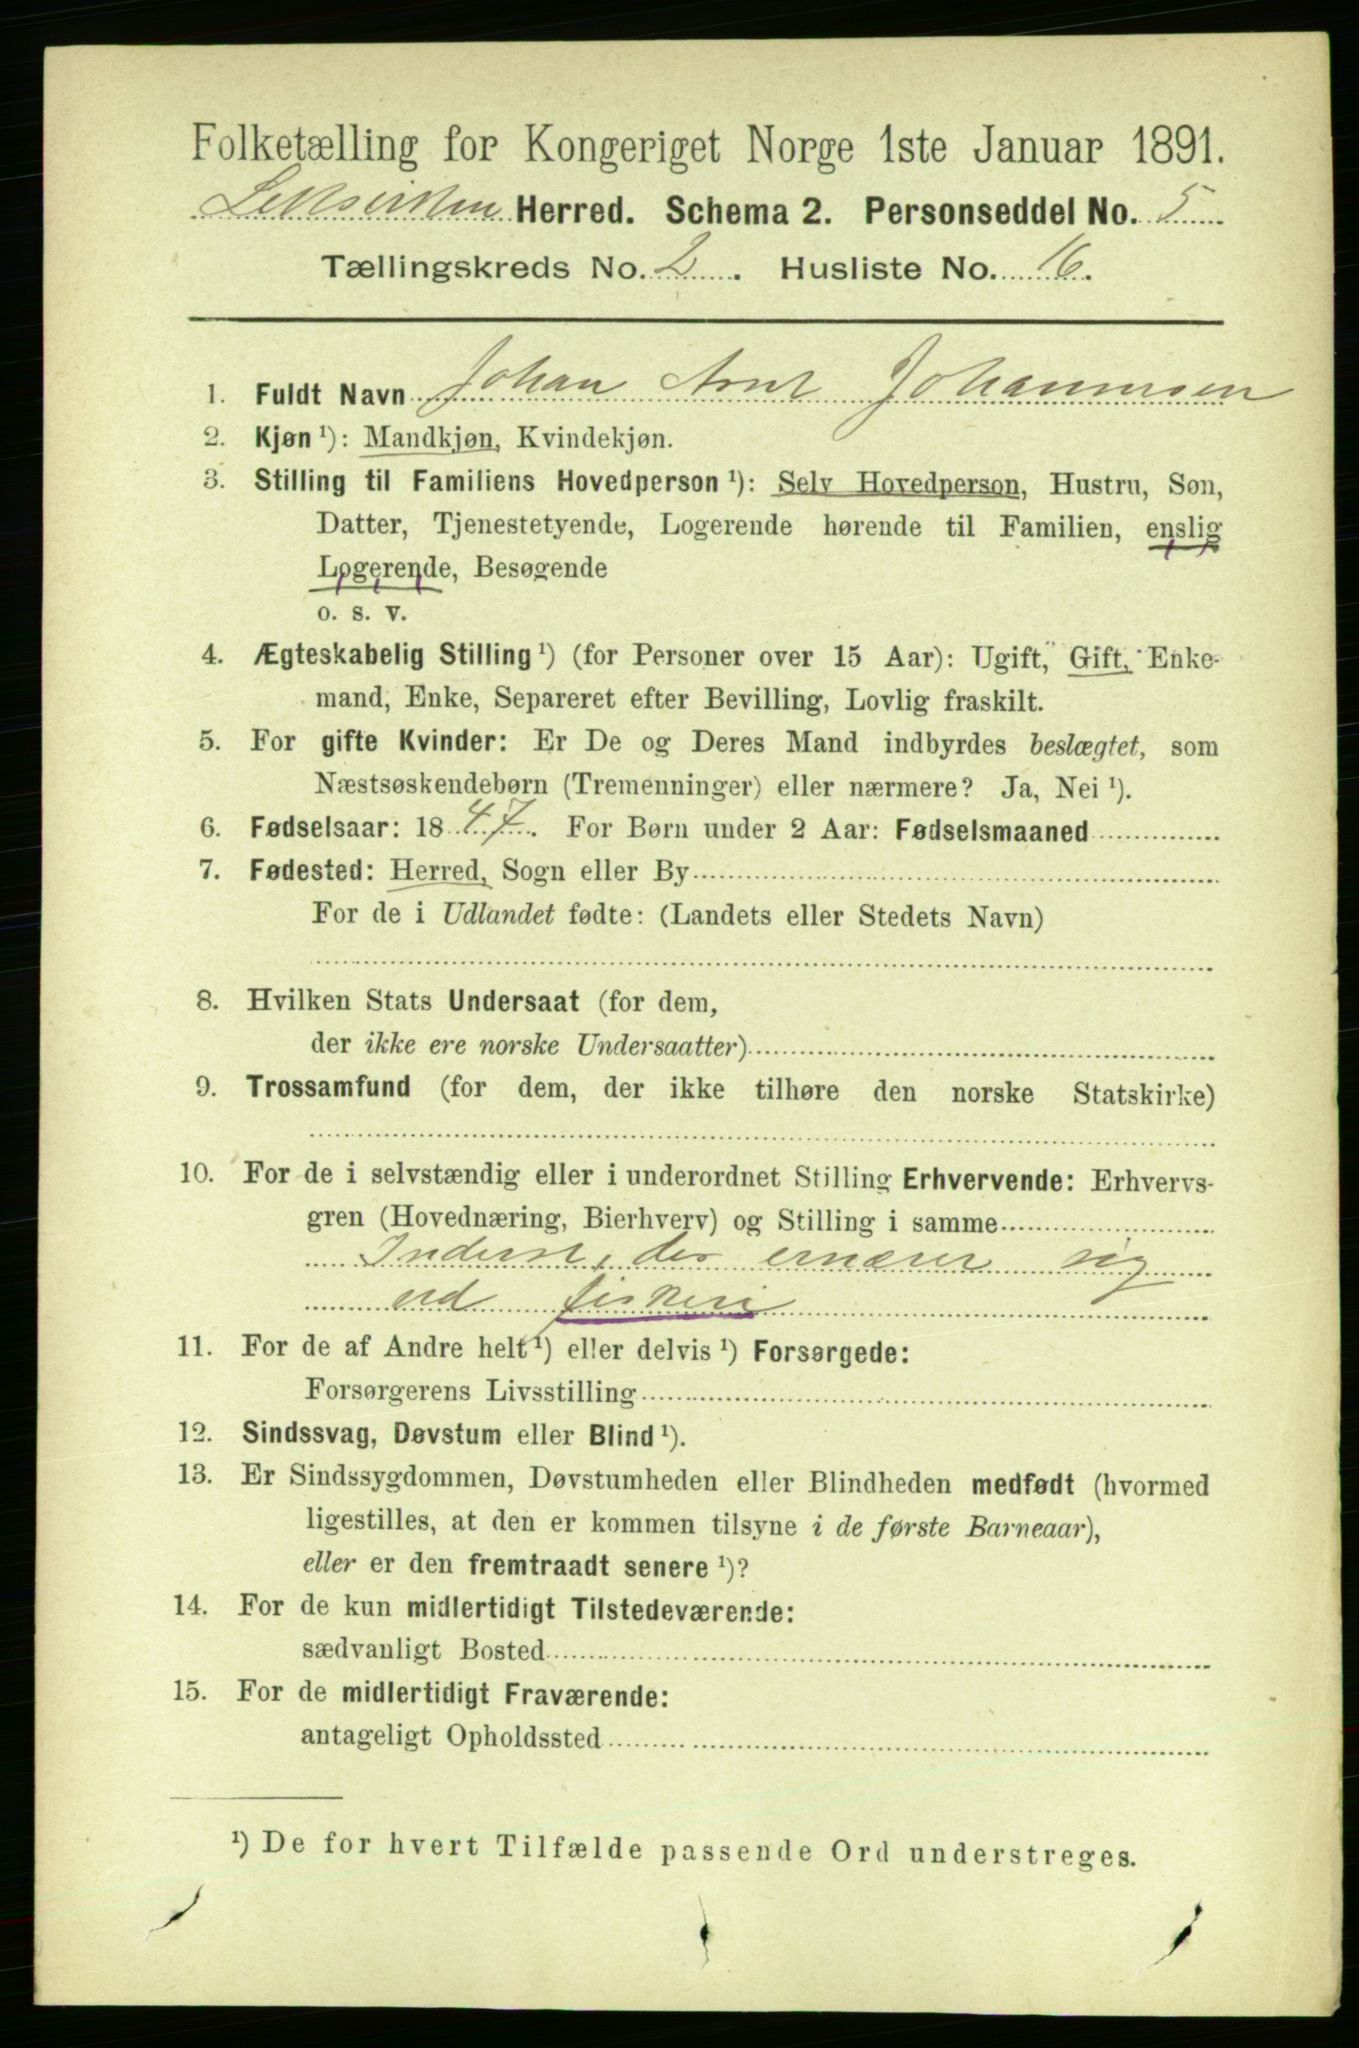 Folketælling for Kongeriget Norge 1ste Januar 1891.
Herred. Schema 2. Personseddel No. 5
Tællingskreds No. 2. Husliste No. 16.
1. Fuldt Navn Johan Arnt Johannesen
2. Kjøn ¹): Mandkjøn, Kvindekjøn.
3. Stilling til Familiens Hovedperson ¹): Selv Hovedperson, Hustru, Søn,
Datter, Tjenestetyende, Logerende hørende til Familien, enslig
Logerende, Besøgende
o. s. v.
4. Ægteskabelig Stilling ¹) (for Personer over 15 Aar): Ugift, Gift, Enke-
mand, Enke, Separeret efter Bevilling, Lovlig fraskilt.
5. For gifte Kvinder: Er De og Deres Mand indbyrdes beslægtet, som
Næstsøskendebørn (Tremenninger) eller nærmere? Ja, Nei ¹).
6. Fødselsaar: 1847. For Børn under 2 Aar: Fødselsmaaned
7. Fødested: Herred, Sogn eller By
For de i Udlandet fødte: (Landets eller Stedets Navn)
8. Hvilken Stats Undersaat (for dem,
der ikke ere norske Undersaatter)
9. Trossamfund (for dem, der ikke tilhøre den norske Statskirke)
10. For de i selvstændig eller i underordnet Stilling Erhvervende: Erhvervs-
gren (Hovednæring, Bierhverv) og Stilling i samme
Inderst, der ernærer sig
ved fiskeri
11. For de af Andre helt ¹) eller delvis ¹) Forsørgede:
Forsørgerens Livsstilling
12. Sindssvag, Døvstum eller Blind ¹).
13. Er Sindssygdommen, Døvstumheden eller Blindheden medfødt (hvormed
ligestilles, at den er kommen tilsyne i de første Barneaar),
eller er den fremtraadt senere ¹)?
14. For de kun midlertidigt Tilstedeværende:
sædvanligt Bosted
15. For de midlertidigt Fraværende:
antageligt Opholdssted
¹) De for hvert Tilfælde passende Ord understreges.